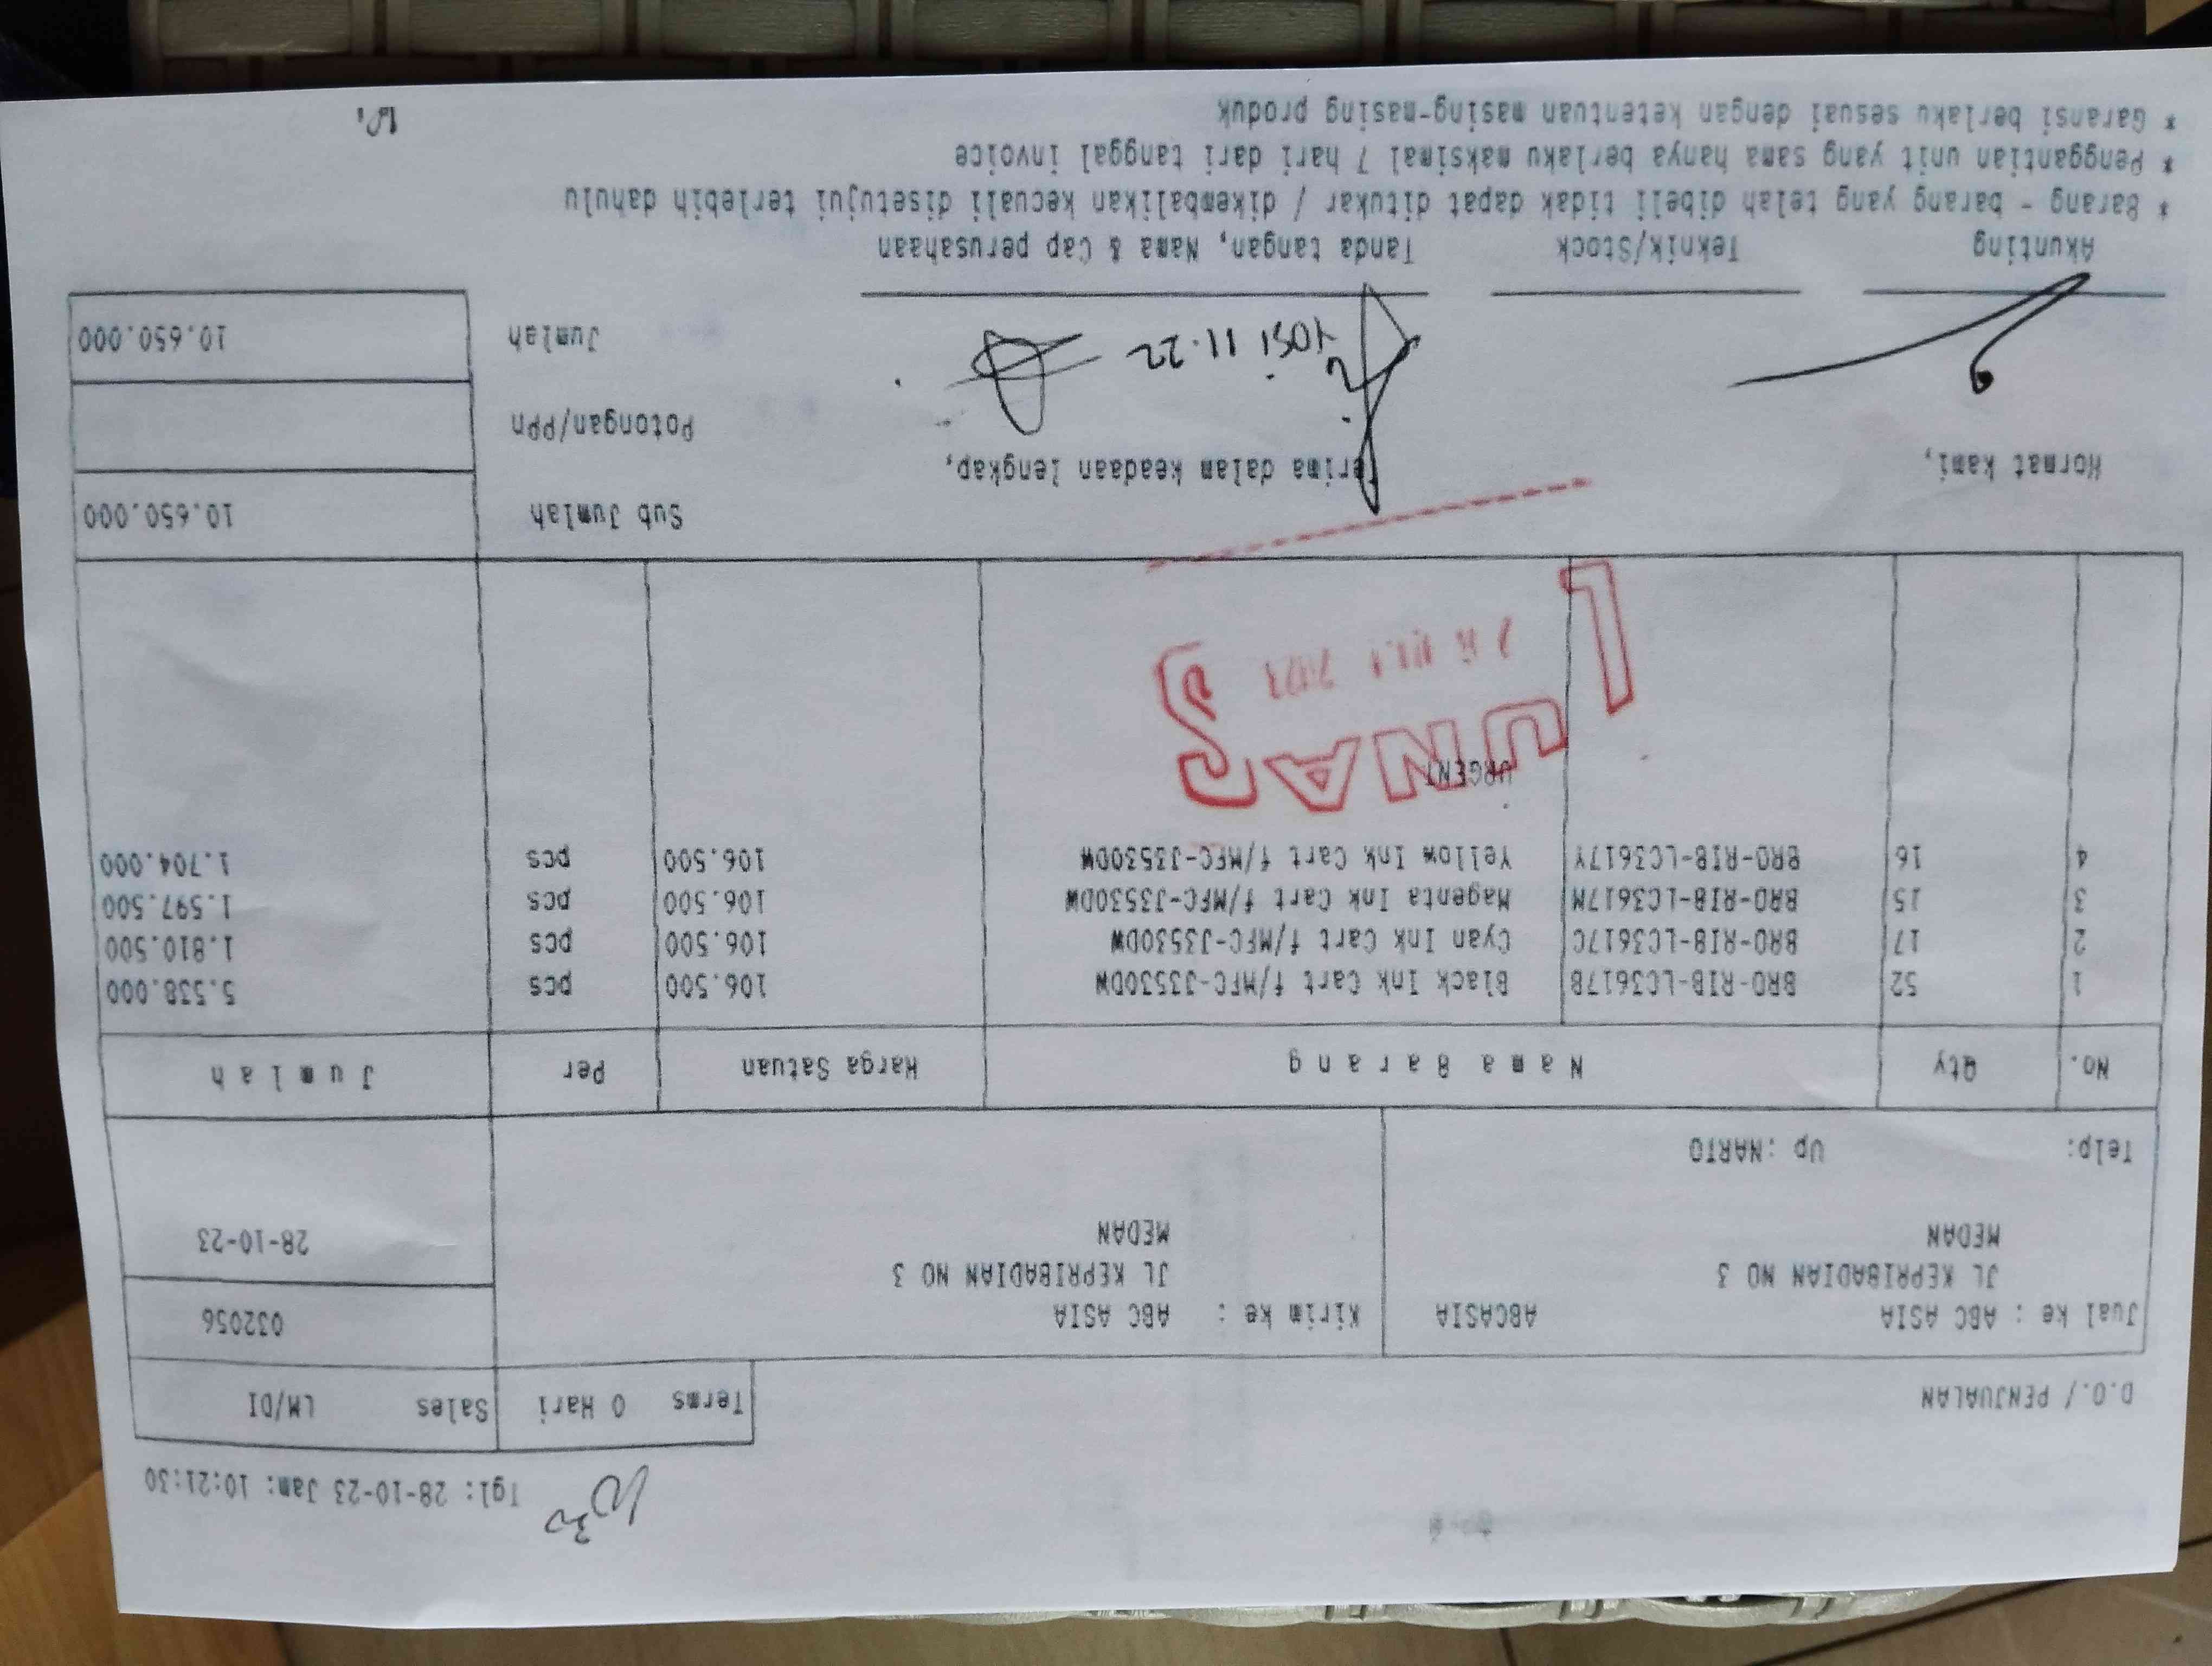 Tgl: 28-10-23 Jam: 10:21:30
10 30
D.O./ PENJUALAN
Terms 0 Hari Sales LM/DI
Jual ke : ABC ASIA ABCASIA Kirim ke : ABC ASIA 032056
JL KEPRIBADIAN NO 3 JL KEPRIBADIAN NO 3
MEDAN MEDAN 28-10-23
Telp: Up :NARTO
No. Qty Nama Barang Harga Satuan Per Jumlah
1 52 BRO-RIB-LC3617B Black Ink Cart f/MFC-J3530DW 106.500 pcs 5.538.000
2 17 BRO-RIB-LC3617C Cyan Ink Cart f/MFC-J3530DW 106.500 pcs 1.810.500
3 15 BRO-RIB-LC3617M Magenta Ink Cart f/MFC-J3530DW 106.500 pcs 1.597.500
4 16 BRO-RIB-LC3617Y Yellow Ink Cart f/MFC-J3530DW 106.500 pcs 1.704.000
URGENT
LUNAS
Sub Jumlah 10.650.000
Hormat kami, erima dalam keadaan lengkap,
Potongan/PPn
YOSI 11.22
Jumlah 10.650.000
Akunting Teknik/Stock Tanda tangan, Nama & Cap perusahaan
* Barang - barang yang telah dibeli tidak dapat ditukar / dikembalikan kecuali disetujui terlebih dahulu
* Penggantian unit yang sama hanya berlaku maksimal 7 hari dari tanggal invoice
* Garansi berlaku sesuai dengan ketentuan masing-masing produk